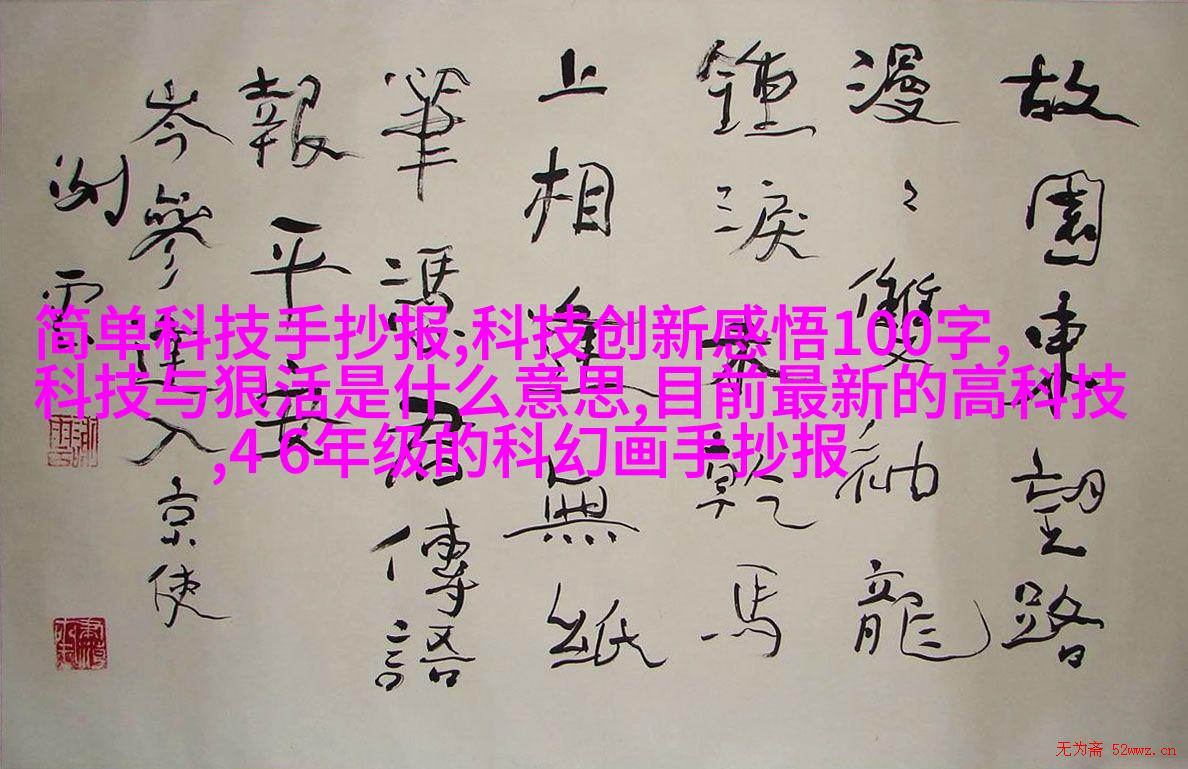 故園東望路
漫〻雙袖龍
鍾淚乾馬
上相逢無紙
筆憑君傳語
報平安
岑參逢入京使
简单科技手抄报,科技创新感悟100字,
科技与狠活是什么意思,目前最新的高科技
,4 6年级的科幻画手抄报
无为斋 52wwz.cn